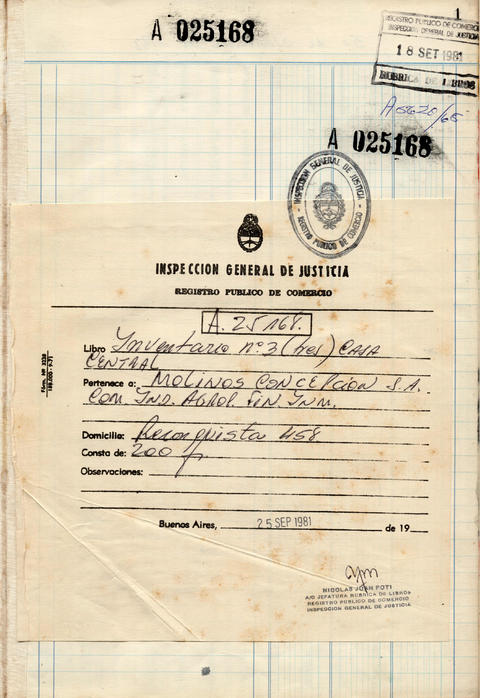 1
A 025168
REGISTRO PUBLICO DE COMERCIO
INSPECCION GENERAL DE JUSTICIA
18 SET 1981
RUBRICA DE LIBROS
A 025168
INSPECCION GENERAL DE JUSTICIA
REGISTRO PUBLICO DE COMERCIO
INSPECCION GENERAL DE JUSTICIA
REGISTRO PUBLICO DE COMERCIO
A. 25168.
Libro Inventario nº 3 (tres) CASA
CENTRAL
Pertenece a: MOLINOS CONCEPCION S.A.
COM. IND. AGROP. FIN INM.
Domicilio: Reconquista 458
Consta de: 200 f
Observaciones:
Buenos Aires, 25 SEP 1981 de 19
NICOLAS JUAN POTI
A/C JEFATURA RUBRICA DE LIBROS
REGISTRO PUBLICO DE COMERCIO
INSPECCION GENERAL DE JUSTICIA